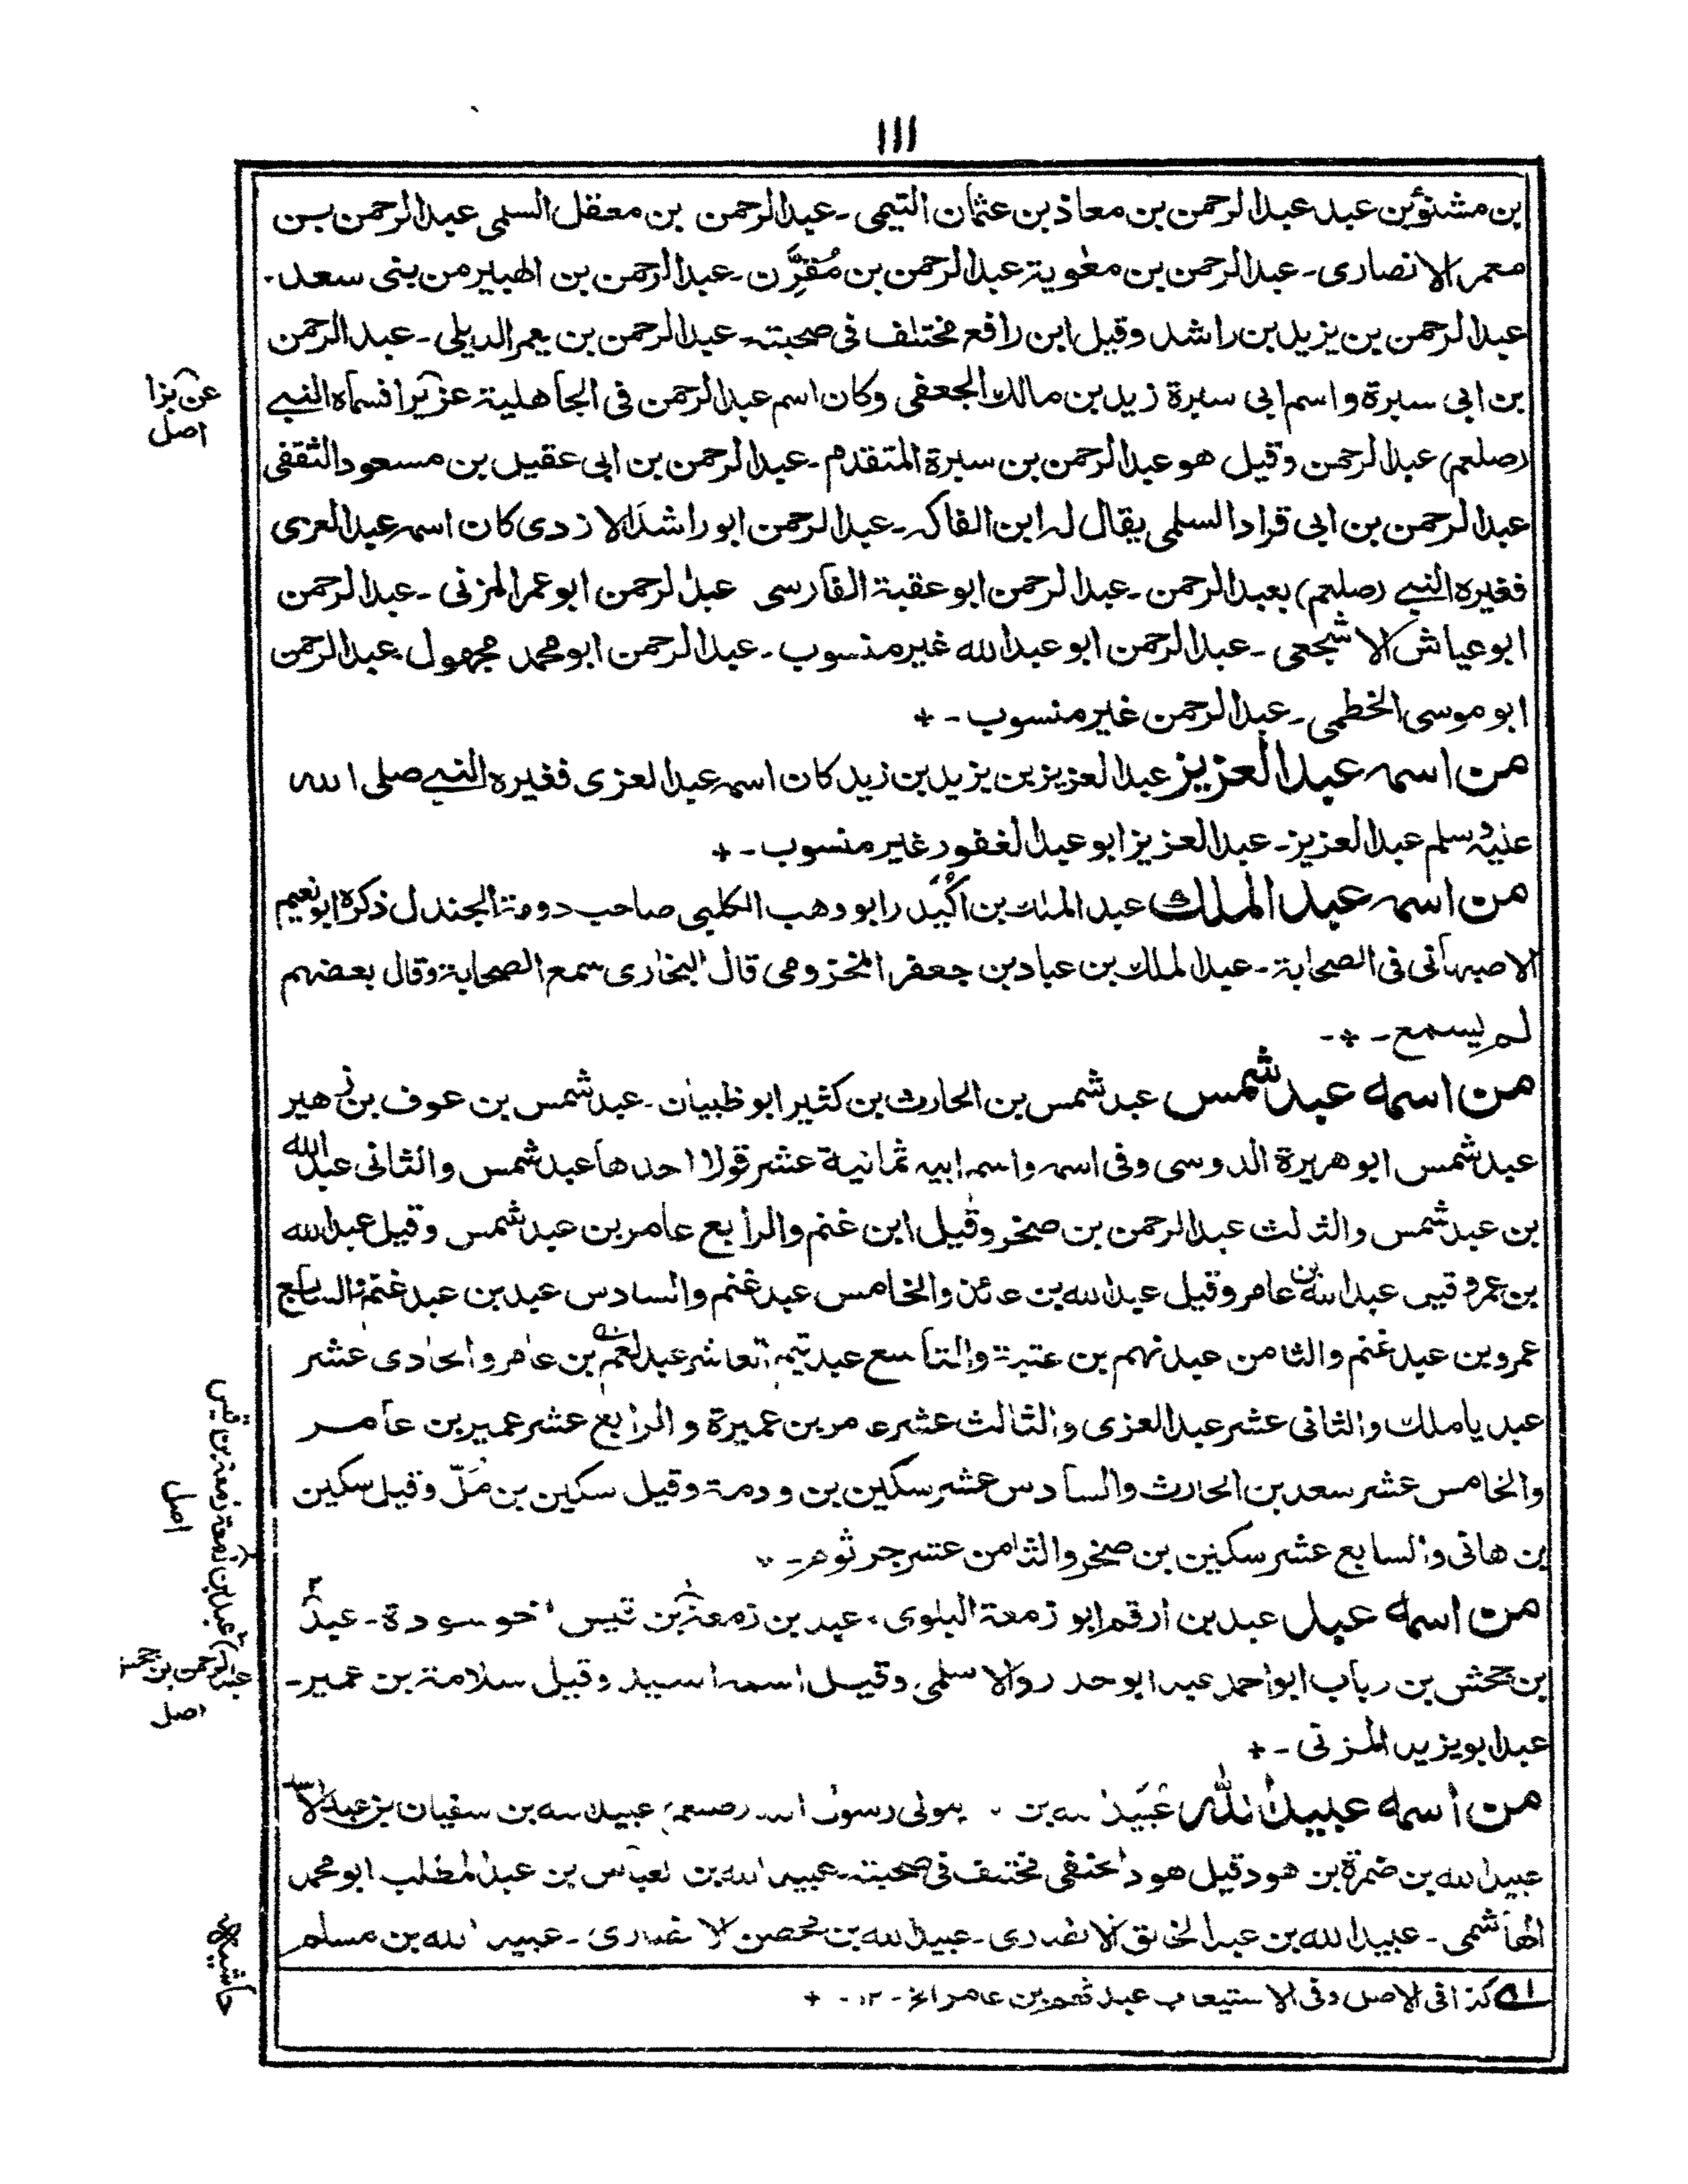 ١١١
بن مشنؤ بن عبد عبد الرحمن بن معاذ بن عثمان التيمى ـ عبد الرحمن بن معقل السلمى عبد الرحمن بن
معمر الانصارى ـ عبد الرحمن بن معٰوية عبد الرحمن بن مُقَرِّن ـ عبد الرحمن بن الهبير من بنى سعد ـ
عبد الرحمن بن يزيد بن راشد وقيل ابن رافع مختلف فى صحبته ـ عبد الرحمن بن يعمر الديلى ـ عبد الرحمن
بن ابى سبرة واسم ابى سبرة زيد بن مالك الجعفى وكان اسم عبد الرحمن فى الجاهلية عزيرا فسماه النبى
(صلعم) عبد الرحمن وقيل هو عبد الرحمن بن سبرة المتقدم ـ عبد الرحمن بن ابى عقيل بن مسعود الثقفى
عبد الرحمن بن ابى قراد السلمى يقال له ابن الفاكه ـ عبد الرحمن ابو راشد الازدى كان اسمه عبد العزى
فغيره النبى (صلعم) بعبد الرحمن ـ عبد الرحمن ابو عقبة الفارسى عبد الرحمن ابو عمر المزنى ـ عبد الرحمن
ابو عياش الاشجعى ـ عبد الرحمن ابو عبد الله غير منسوب ـ عبد الرحمن ابو محمد مجهول ـ عبد الرحمن
ابو موسى الخطمى ـ عبد الرحمن غير منسوب ـ +
من اسمه عبد العزيز عبد العزيز بن يزيد بن زيد كان اسمه عبد العزى فغيره النبى صلى الله
عليه وسلم عبد العزيز ـ عبد العزيز ابو عبد الغفور غير منسوب ـ +
من اسمه عبد الملك عبد الملك بن اُكَيْدر ابو وهب الكلبى صاحب دومة الجندل ذكره ابو نعيم
الاصبهانى فى الصحابة ـ عبد الملك بن عباد بن جعفر المخزومى قال البخارى سمع الصحابة وقال بعضهم
لم يسمع ـ + ـ
من اسمه عبد شمس عبد شمس بن الحارث بن كثير ابو ظبيان ـ عبد شمس بن عوف بن زهير
عبد شمس ابو هريرة الدوسى وفى اسمه واسم ابيه ثمانية عشر قولا احدها عبد شمس والثانى عبد الله
بن عبد شمس والثالث عبد الرحمن بن صخر وقيل ابن غنم والرابع عامر بن عبد شمس وقيل عبد الله
بن عمرو قيل عبد الله بن عامر وقيل عبد الله بن عائذ والخامس عبد غنم والسادس عبد بن عبد غنم والسابع
عمرو بن عبد غنم والثامن عبد نهم بن عتبة والتاسع عبد تيم العاشر عبد نعم بن عامر والحادى عشر
عبد ياملك والثانى عشر عبد العزى والثالث عشر عامر بن عميرة والرابع عشر عمير بن عامر
والخامس عشر سعد بن الحارث والسادس عشر سكين بن ودمة وقيل سكين بن مُلّ وقيل سكين
بن هانى والسابع عشر سكين بن صخر والثامن عشر جرثوم ـ
من اسمه عبد عبد بن ارقم ابو زمعة البلوى ـ عبد بن زمعة بن قيس اخو سودة ـ عبد
بن جحش بن رباب ابو احمد عبد ابو حدرد الاسلمى وقيل اسمه اسيد وقيل سلامة بن عمير ـ
عبد ابو يزيد المزنى ـ +
من اسمه عبيد الله عُبَيد الله بن مولى رسول الله (صلعم) عبيد الله بن سفيان بن عبد الاسد
عبيد الله بن ضمرة بن هود قيل هود الحنفى مختلف فى صحبته ـ عبيد الله بن العباس بن عبد المطلب ابو محمد
الهاشمى ـ عبيد الله بن عبد الخالق الانصارى ـ عبيد الله بن محصن الانصارى ـ عبيد الله بن مسلم
١ه كذا فى الاصل وفى الاستيعاب عبد نهم بن عامر الخ ـ ١٢ ـ +
عن يزا
اصل
عبد بن زمعة بن قيس
اصل
عبد الرحمن بن جحش
اصل
حاشيه